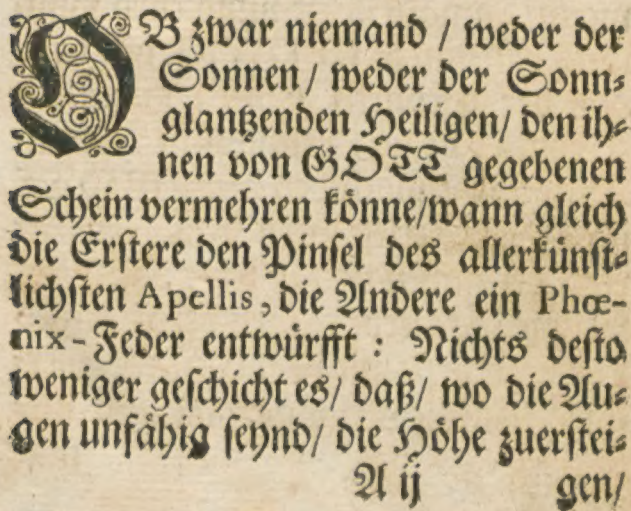 OB zwar niemand / weder der
Sonnen / weder der Sonn-
glantzenden Heiligen / den ih-
nen von GOTT gegebenen
Schein vermehren könne/wann gleich
die Erstere den Pinsel des allerkünst-
lichsten Apellis, die Andere ein Phœ-
nix-Feder entwürfft : Nichts desto
weniger geschicht es/ daß/ wo die Au-
gen unfähig seynd/ die Höhe zuerstei-
A ij gen/